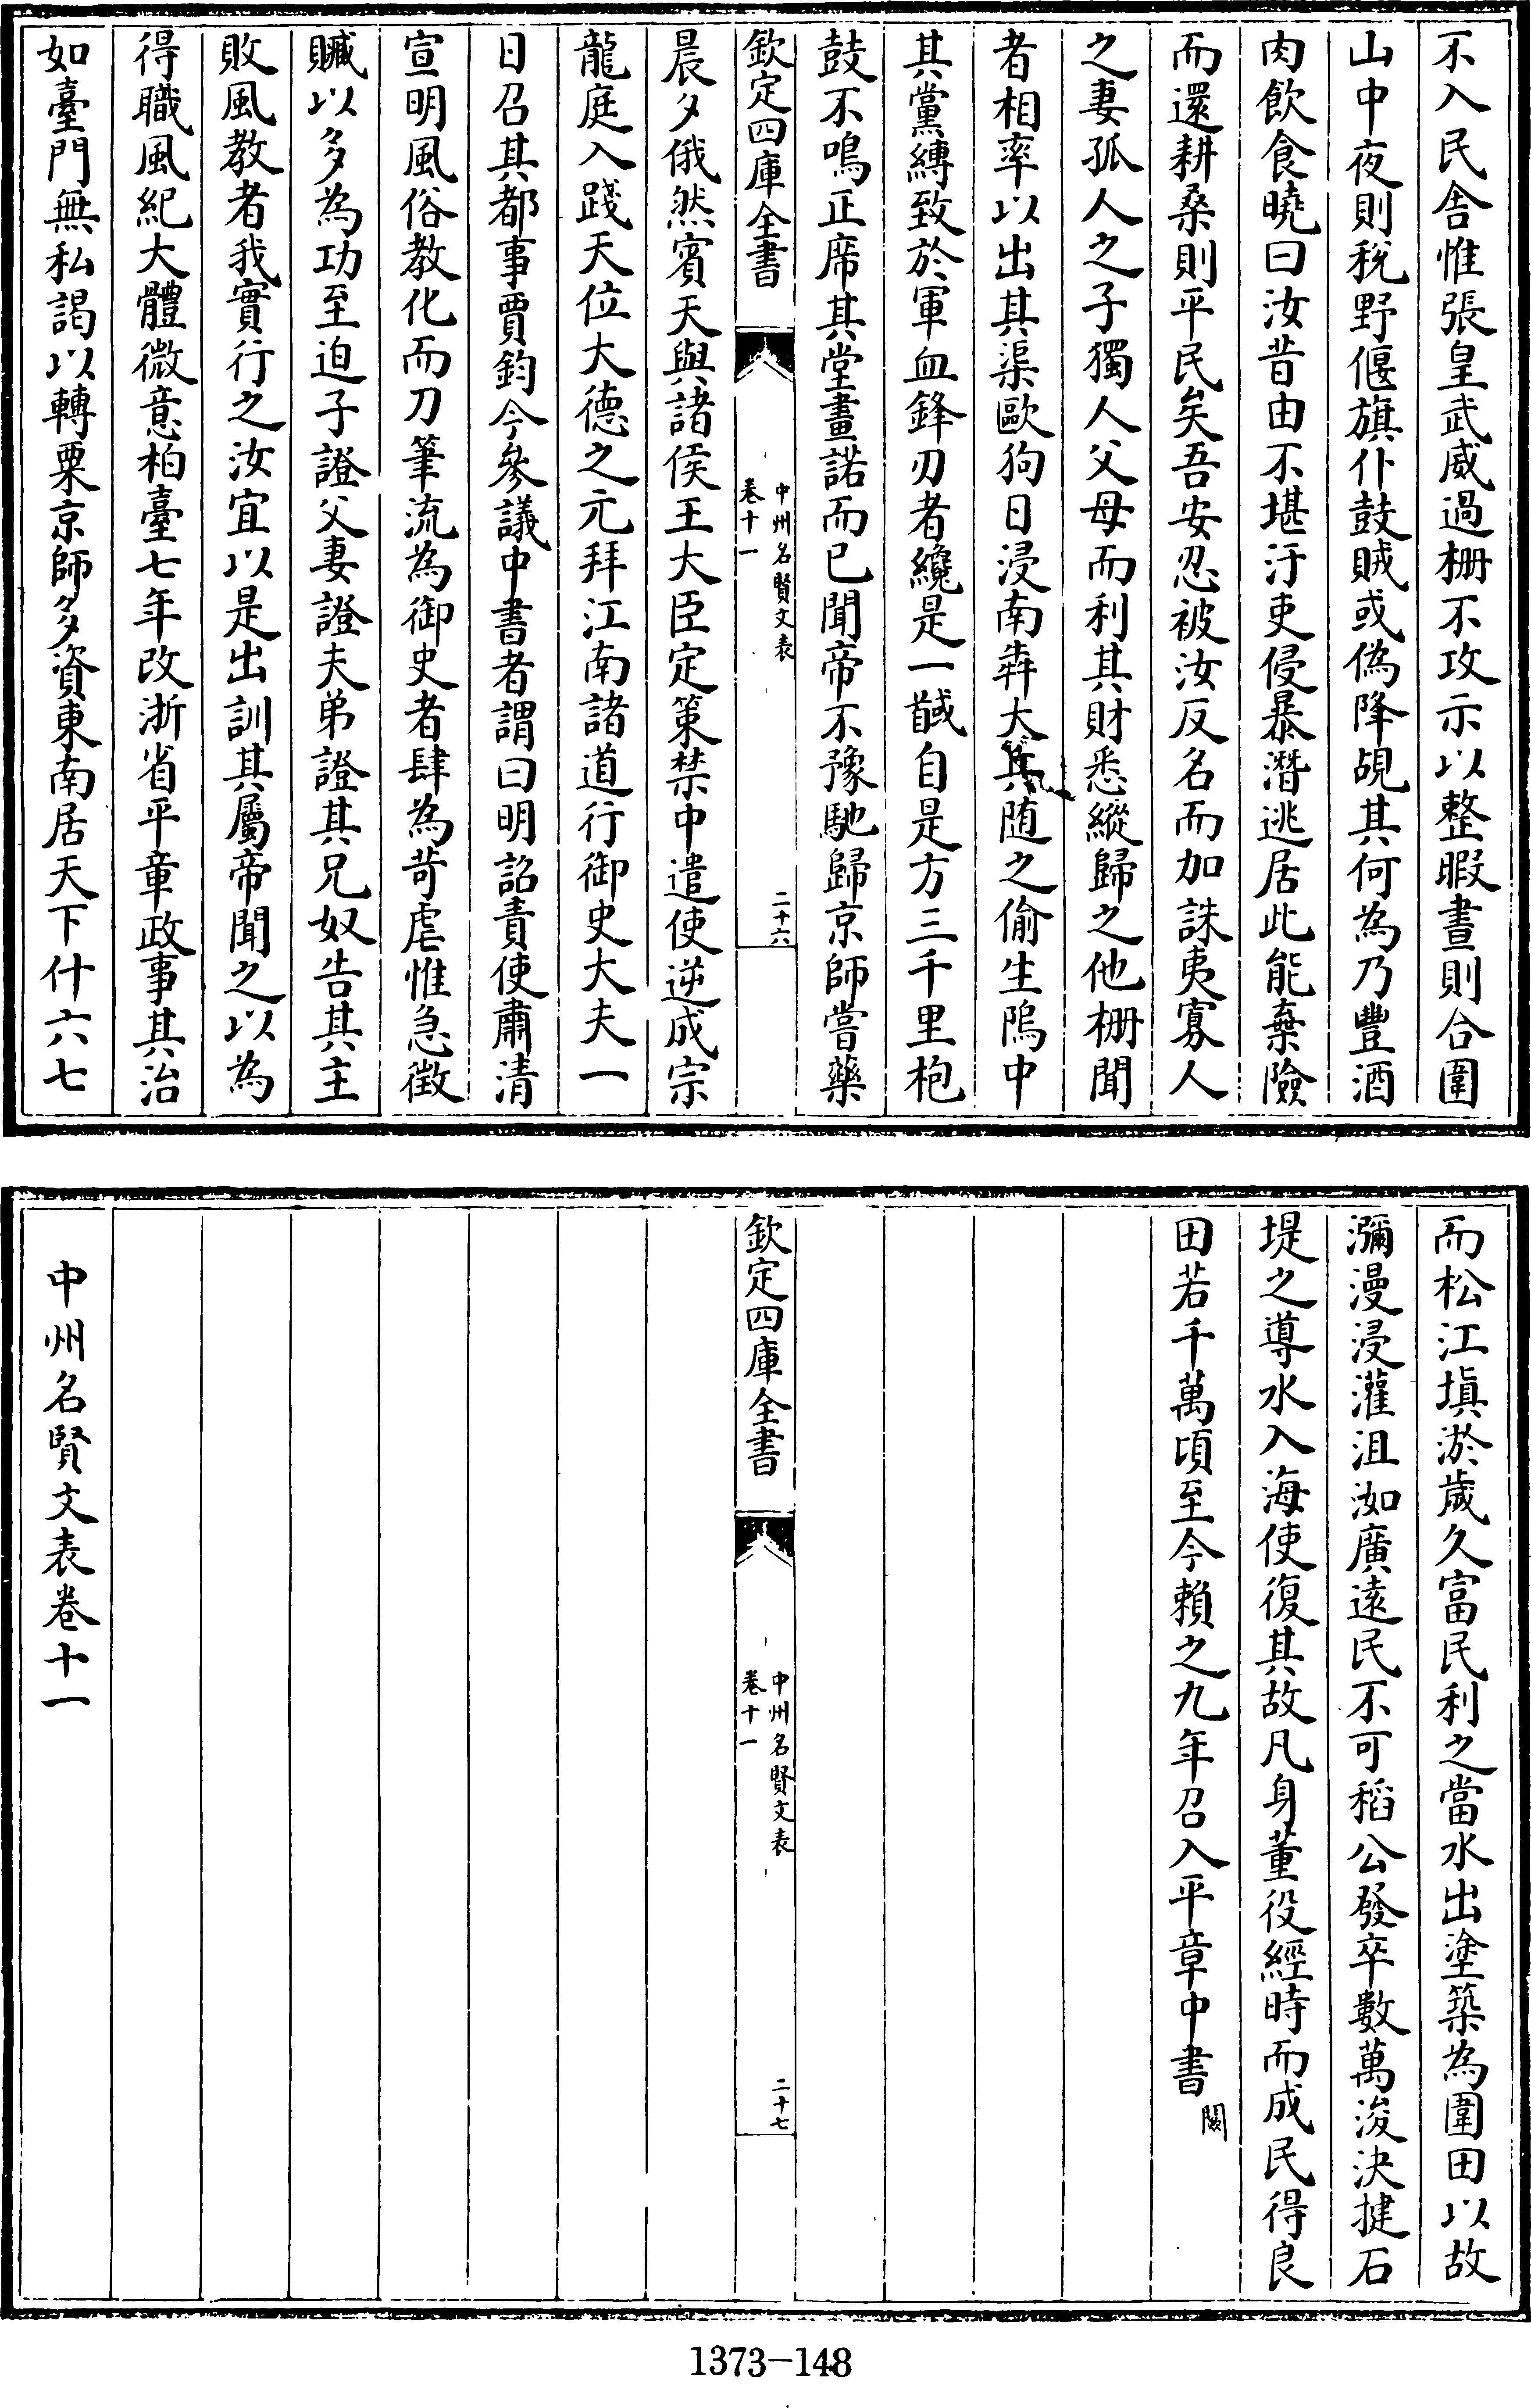 不入民舍惟張皇武威過柵不攻示以整暇晝則合圍
山中夜則稅野偃旗仆鼓賊或偽降覘其何為乃豐酒
肉飲食曉曰汝昔由不堪汙吏侵暴潛逃居此能棄險
而還耕桑則平民矣吾安忍被汝反名而加誅夷寡人
之妻孤人之子獨人父母而利其財悉縱歸之他柵聞
者相率以出其渠歐狗日浸南犇大其随之偷生隖中
其黨縛致於軍血鋒刃者纔是一馘自是方三千里枹
鼓不鳴正席其堂畫諾而已聞帝不豫馳歸京師嘗藥
欽定四庫全書
中州名賢文表
卷十一
二十六
晨夕俄然賓天與諸侯王大臣定策禁中遣使逆成宗
龍庭入踐天位大德之元拜江南諸道行御史大夫一
日召其都事賈鈞今參議中書者謂曰明詔責使肅清
宣明風俗教化而刀筆流為御史者肆為苛虐惟急徵
贓以多為功至迫子證父妻證夫弟證其兄奴告其主
敗風教者我實行之汝宜以是出訓其屬帝聞之以為
得職風紀大體微意柏臺七年改浙省平章政事其治
如臺門無私謁以轉粟京師多資東南居天下什六七
而松江填淤歲久富民利之當水出塗築為圍田以故
瀰漫浸灌沮洳廣遠民不可稻公發卒數萬浚決揵石
堤之導水入海使復其故凡身董役經時而成民得良
田若千萬頃至今賴之九年召入平章中書闕
欽定四庫全書
中州名賢文表
卷十一
二十七
中州名賢文表卷十一
1373-148